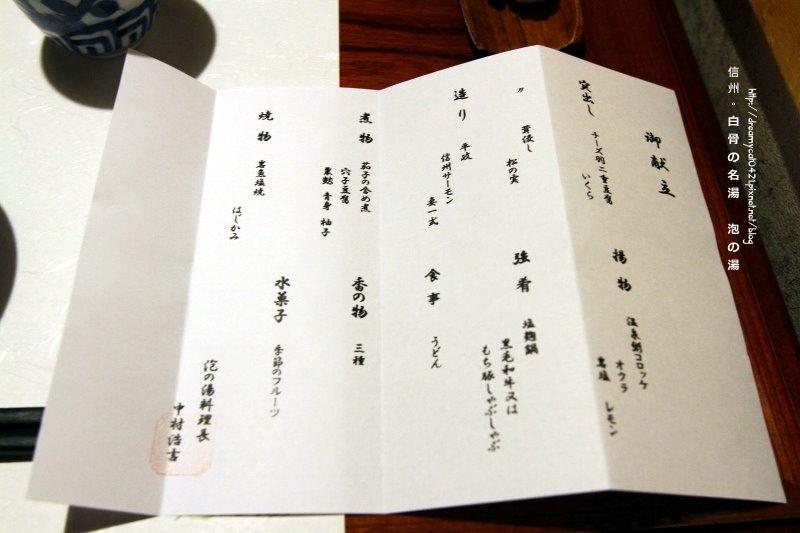 御献立
突出し
チーズ羽二重豆腐
いくら
〃
茸浸し
松の実
造り
平政
信州サーモン
妻一式
煮物
茄子の含め煮
穴子豆腐
粟麩 青身 柚子
焼物
岩魚塩焼
はじかみ
揚物
温泉粥コロッケ
オクラ
岩塩 レモン
強肴
塩麹鍋
黒毛和牛又は
もち豚しゃぶしゃぶ
食事
うどん
香の物
三種
水菓子
季節のフルーツ
泡の湯料理長
中村浩吉
信州。白骨の名湯 泡の湯
http://dreamycat0421.pixnet.net/blog